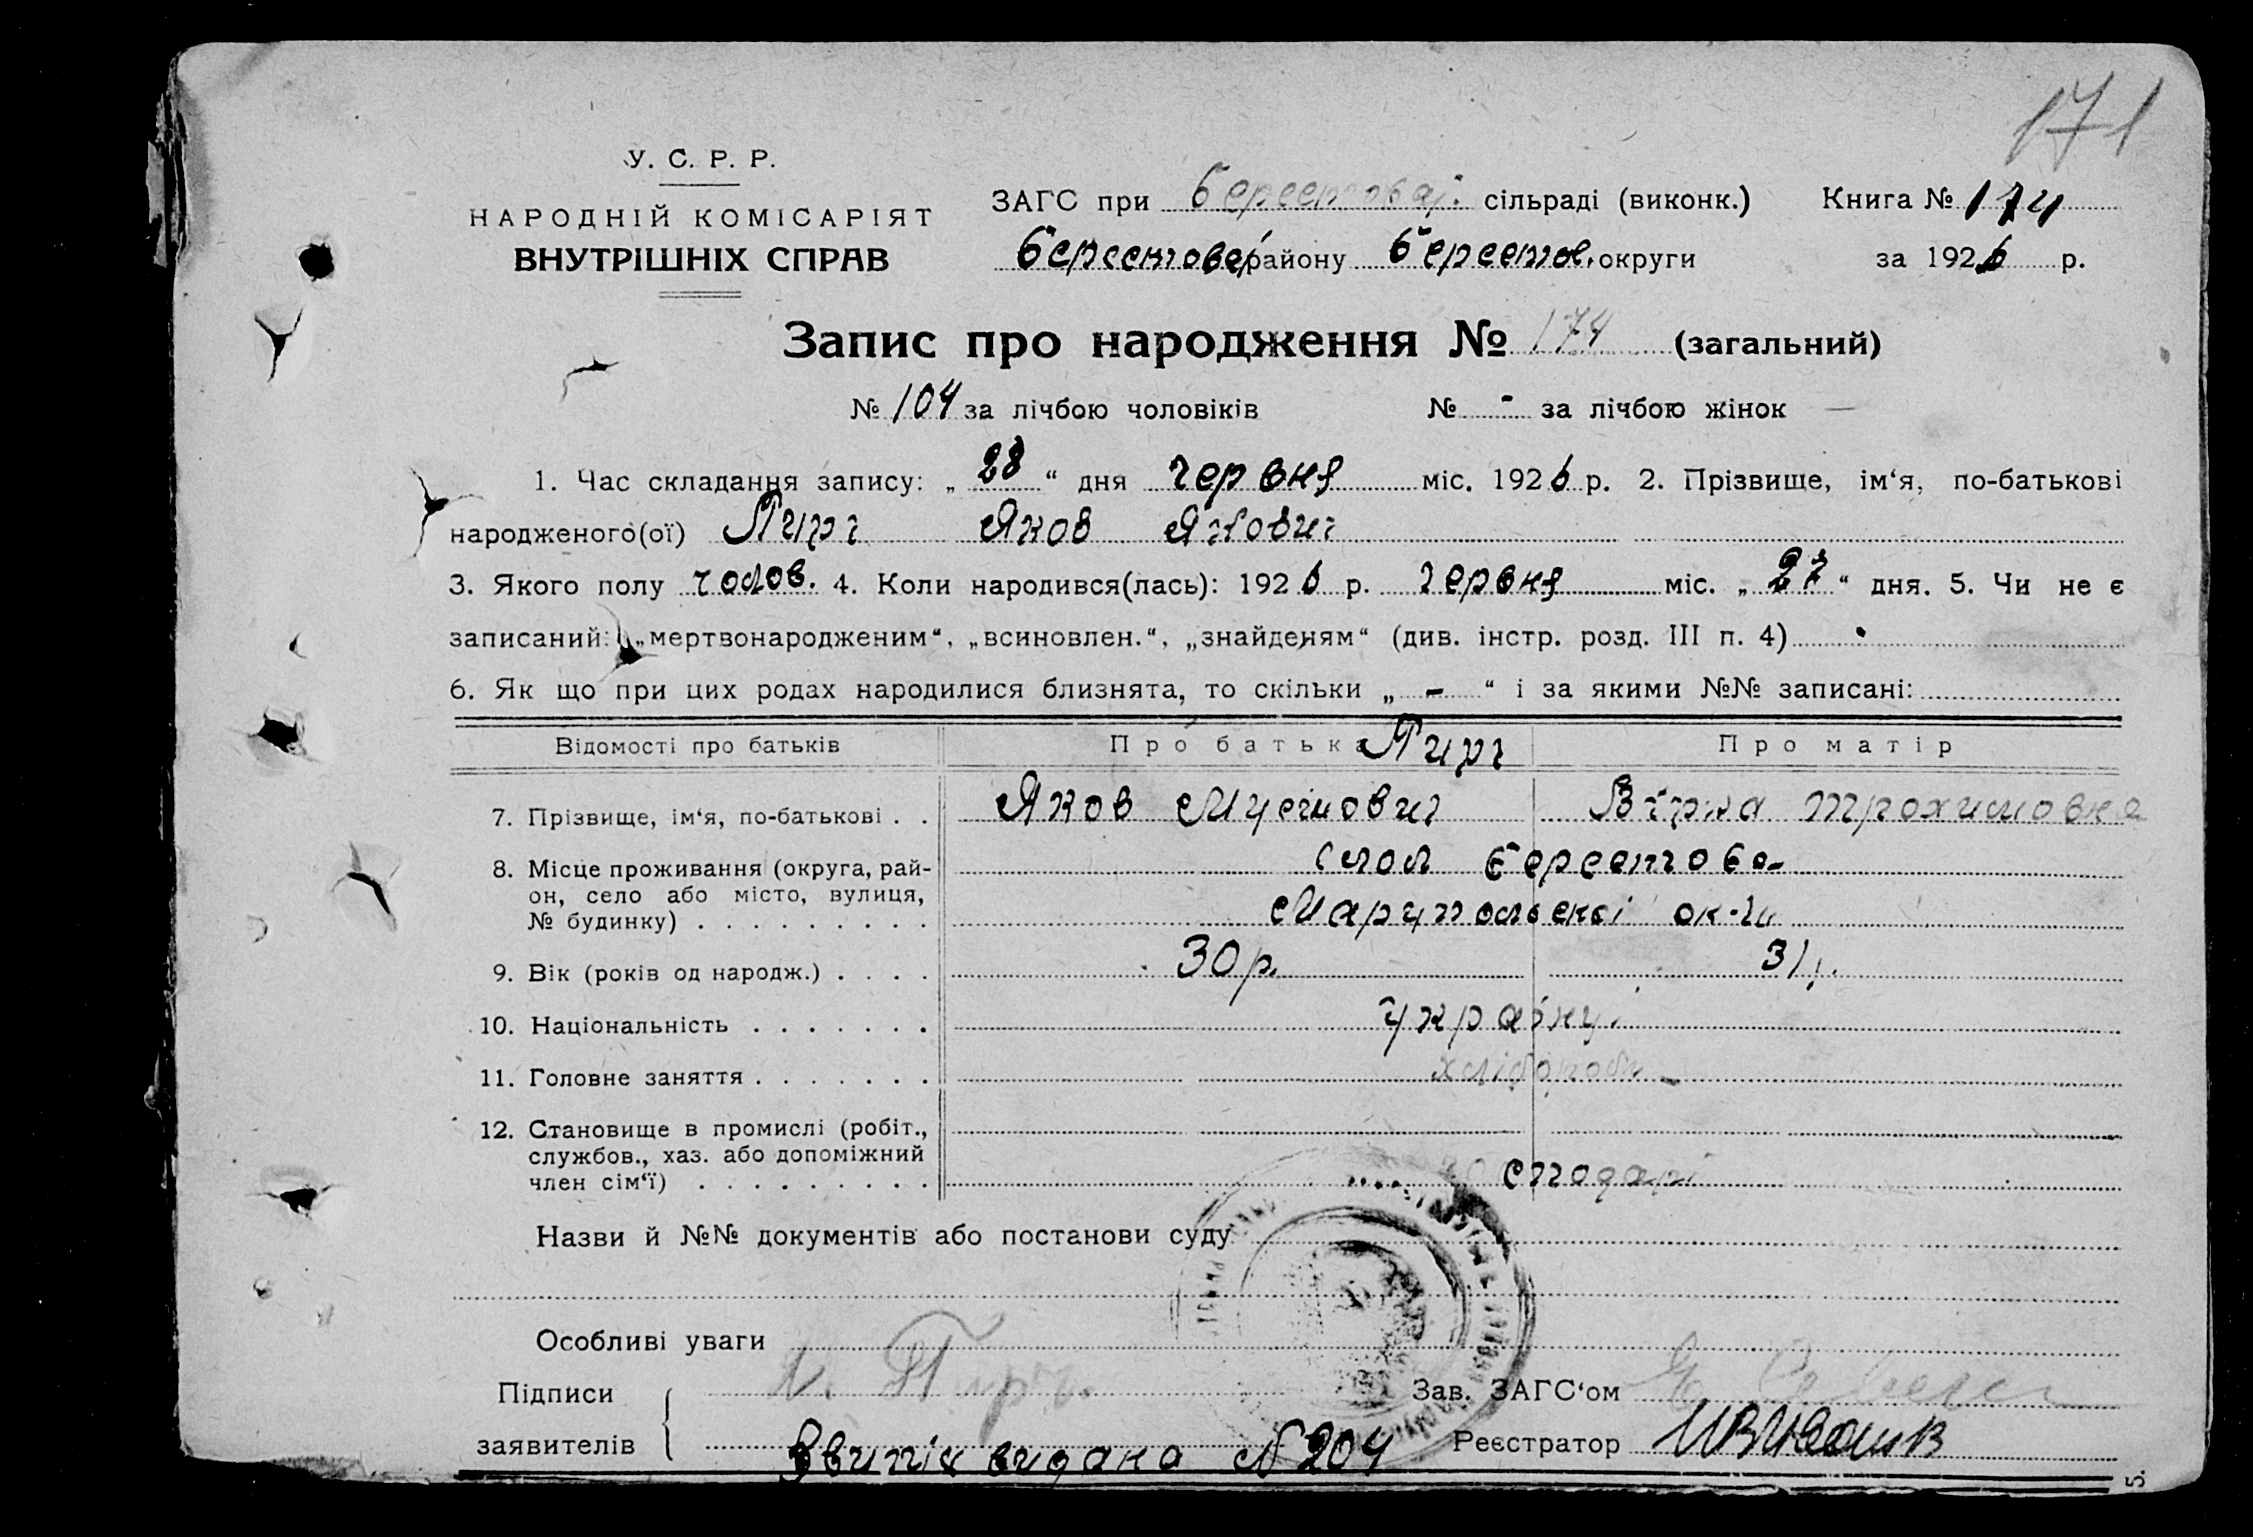 171
У. С. Р. Р.
НАРОДНІЙ КОМІСАРІЯТ
ВНУТРІШНІХ СПРАВ
ЗАГС при сільраді (виконк.) Книга № 174
району округи за 1926 р.
Запис про народження № 174 (загальний)
№ 104 за лічбою чоловіків № - за лічбою жінок
1. Час складання запису: „ 28 “ дня червня міс. 1926 р. 2. Прізвище, ім‘я, по-батькові
народженого(ої) Пирч Яков Якович
3. Якого полу чолов. 4. Коли народився(лась): 1926 р. червня міс. „ 27 “ дня. 5. Чи не є
записаний: „мертвонародженим“, „всиновлен.“, „знайденям“ (див. інстр. розд. III п. 4)
6. Як що при цих родах народилися близнята, то скільки „ - “ і за якими №№ записані:
Відомості про батьків Про батька Пирч Про матір
7. Прізвище, ім‘я, по-батькові . . Яков Мусійович Трохимовна
8. Місце проживання (округа, рай-
он, село або місто, вулиця,
№ будинку) . . . . . . . . .
Маріупольскоі ок-ги
9. Вік (років од народж.) . . . . 30 р. 31 р.
10. Національність . . . . . . . українці
11. Головне заняття . . . . . . . хлібороби
12. Становище в промислі (робіт.,
службов., хаз. або допоміжний
член сім‘ї) . . . . . . . . .
Назви й №№ документів або постанови суду
Особливі уваги
Підписи Я. Пирч. Зав. ЗАГС‘ом
заявителів видана № 204 Реєстратор
5.